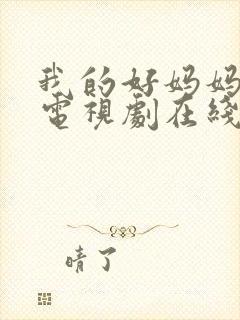 我的好妈妈
電視劇在綫
晴了